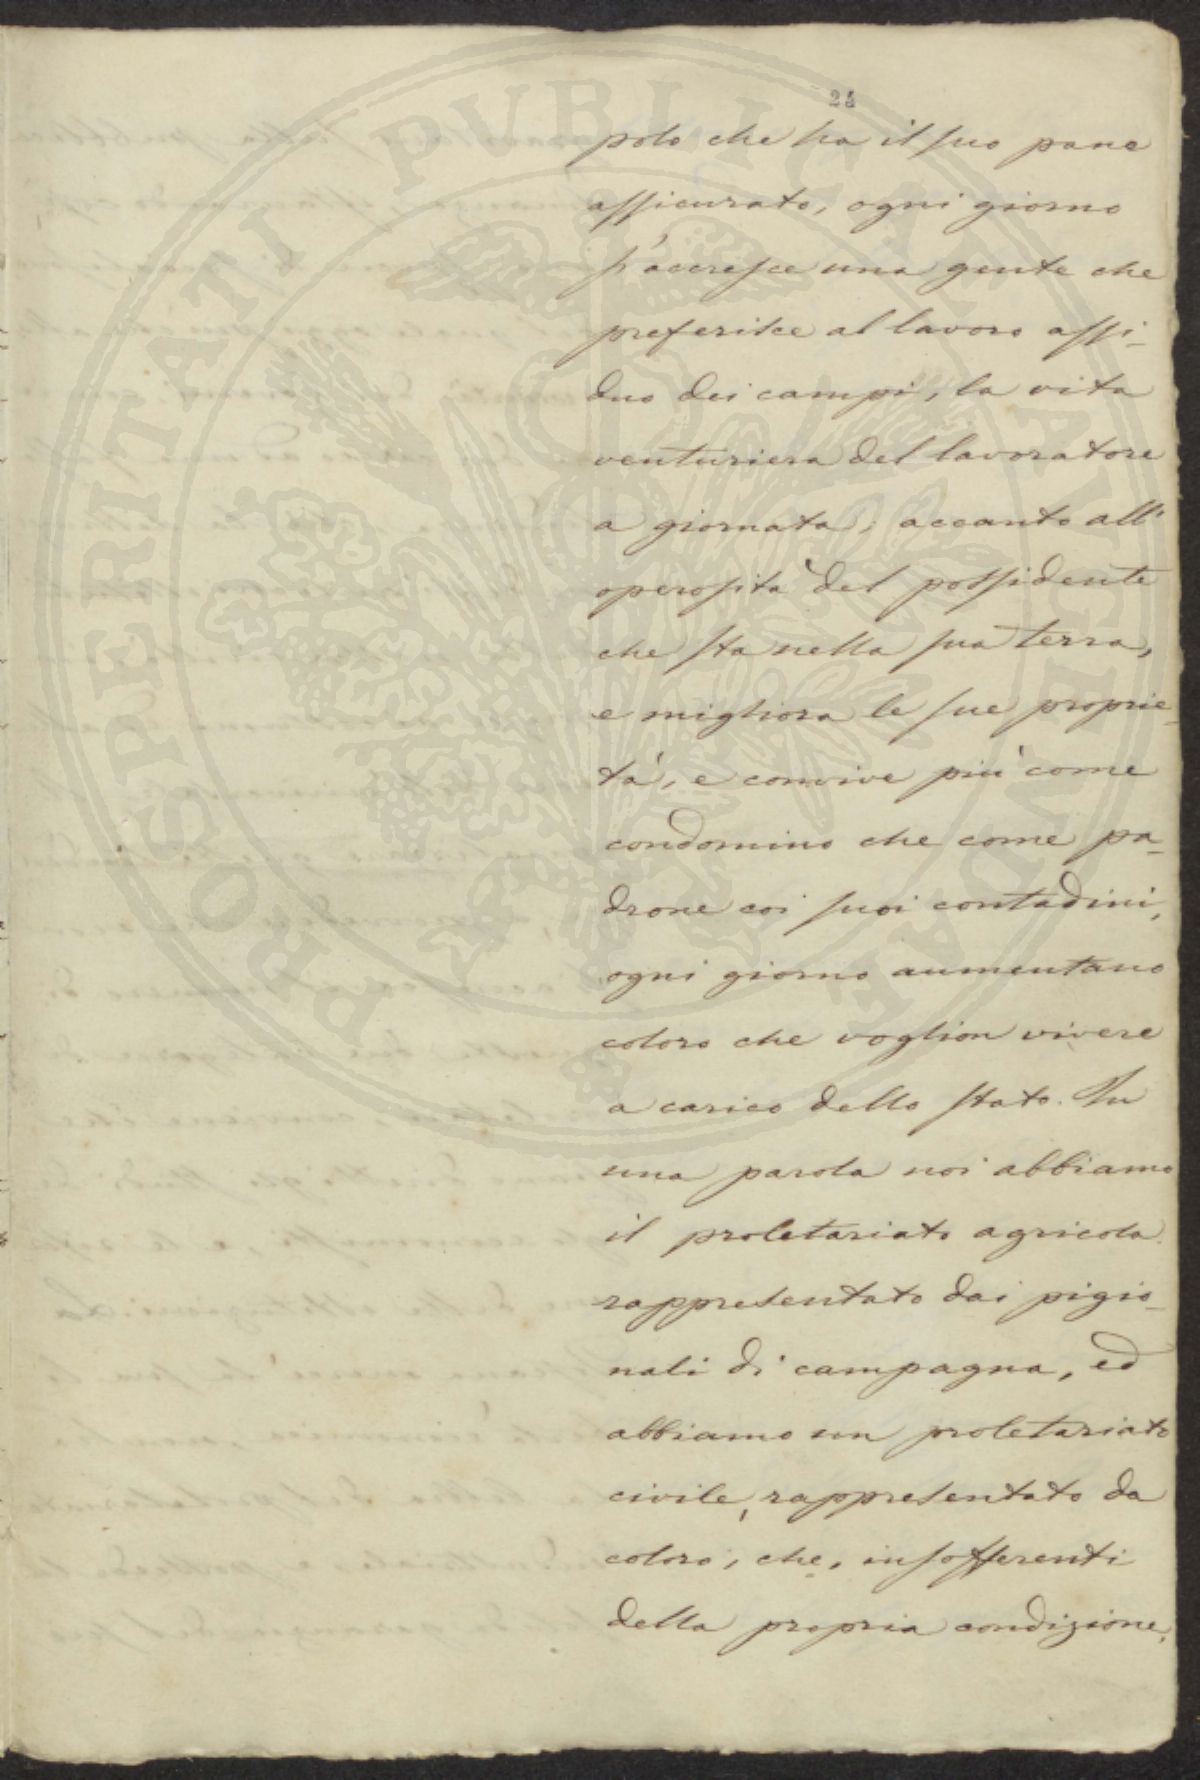 PROSPERITATI PUBLICAE AUGENDAE
polo che ha il suo pane
assicurato, ogni giorno
s'accresce una gente che
preferisce al lavoro assi-
duo dei campi, la vita
venturiera del lavoratore
a giornata; accanto all'
operosità del possidente
che sta nella sua terra,
e migliora le sue proprie-
tà, e convive più come
condomino che come pa-
drone coi suoi contadini,
ogni giorno aumentano
coloro che voglion vivere
a carico dello stato. In
una parola noi abbiamo
il proletariato agricola
rappresentato dai pigio-
nali di campagna, ed
abbiamo un proletariato
civile, rappresentato da
coloro, che, insofferenti
della propria condizione,